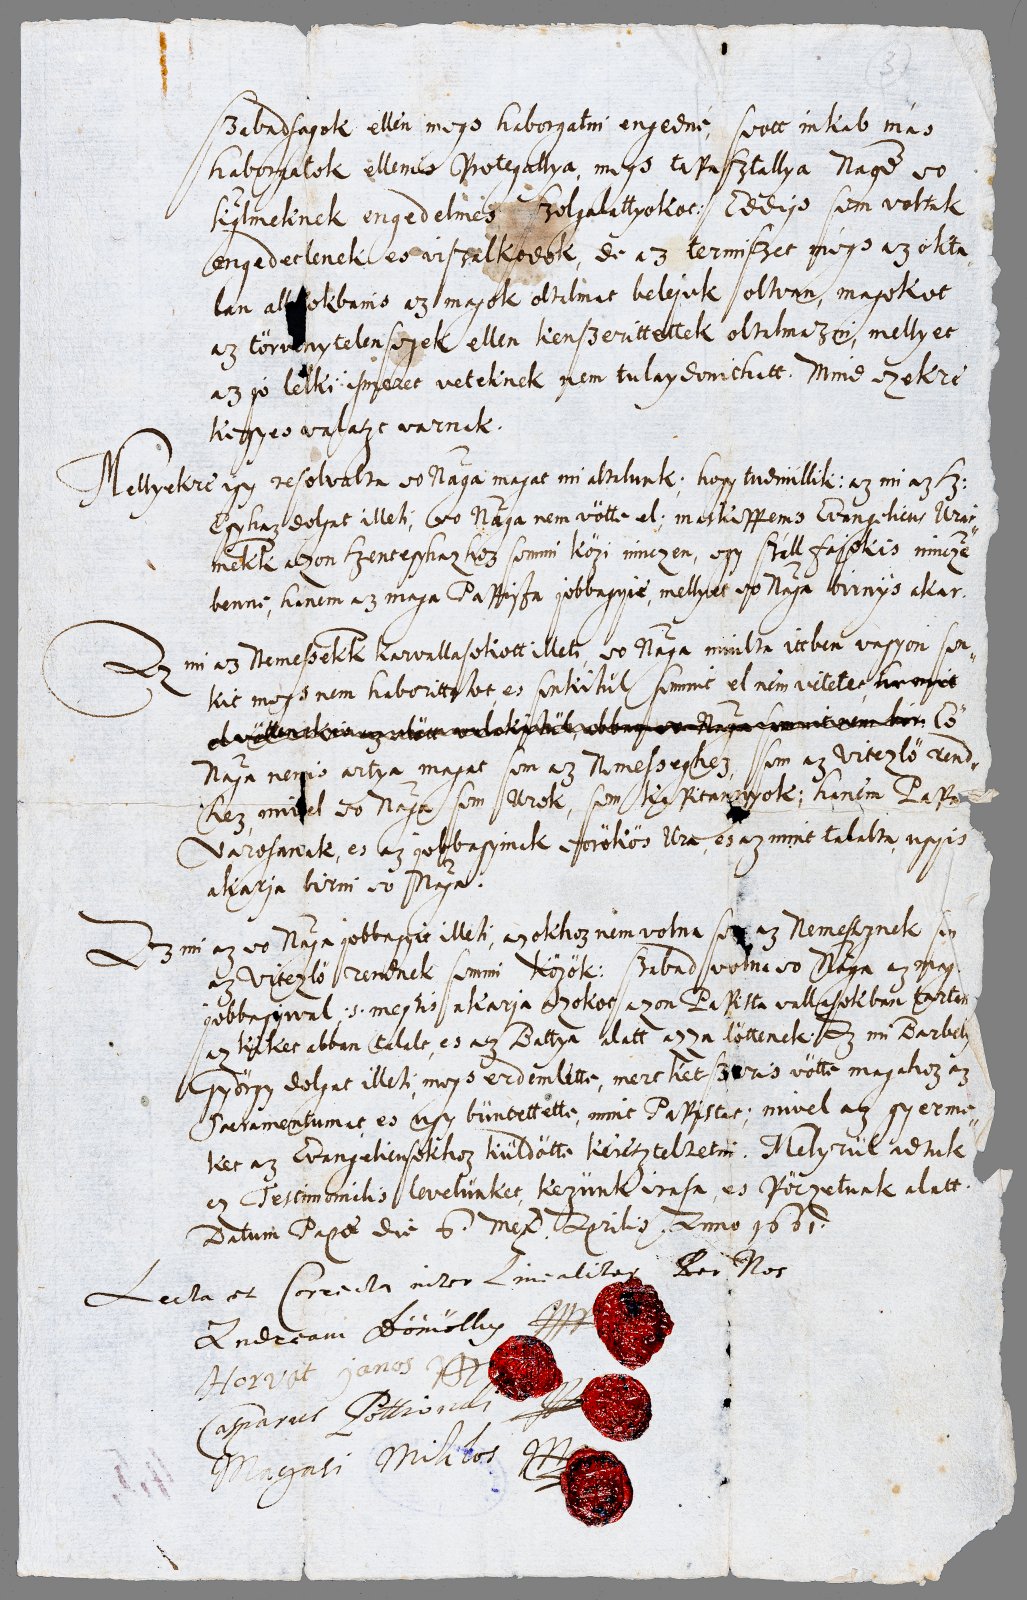 szabadsagok ellen megs haborgatni engedné, sőtt inkab más
haborgatok ellenis Protegallya, megs tapasztallya Nagd eő
kglmeknek engedelmes szolgalattyokot: Eddigs sem voltak
engedetlenek es viszalkodok, de az termiszet megs az okta
lan allatokbanis az magok oltalmat belejek oltvan, magokot
az törvenytelensegek ellen kenszerittettek oltalmazni, mellyet
az jo lelki ismeret veteknek nem tulaydonithatt. Mind ezekre
kegyes valazt varnak.
Mellyekre igy resolvalta eő Naga magat mi altalunk; hogy tudniillik: az mi az Sz:
Egyhaz dolgat illeti, eő Naga nem vötte el; maskippens Evangelicus Urai
mekk azon szentegyhazhoz semmi közi ninczen, egy szall faiokis nincze
benne, hanem az maga Papista jobbagyie, mellyet eő Naga birnys akar.
Az mi az Nemessekk karvallasokott illeti, eő Naga miulta ittben vagyon sen
kit megs nem haborittatot, es senkitül semmit el nem vetetet
Eő
Naga nemis artya magat sem az Nemesseghez, sem az Vitezlö rend
hez, mivel eő Naga sem Urok, sem kapitannyok; hanem Papa
Varosanak, es az jobbagyinak eörökös Ura, es az mint talalta, ugyis
akarja birni eő Naga.
Az mi az eő Naga jobbagyit illeti, azokhoz nem volna sem az Nemessegnek sem
az Vitezlö rendnek semmi közök: szabad volna eő Naga az maga
jobbagyival, s. megis akarja azokot azon Papista vallasokban tartan
az kiket abban talalt, es az Battya alatt azza löttenek: Az mi Barbely
György dolgat illeti, megs erdemlette, mert ket szeris vötte magahoz az
Sacramentumat, es ugy büntettette, mint Papistat; mivel az gyerme
ket az Evangelicusokhoz küldötte keresztelteni. Melyrül adtuk
ez Testimonialis levelünket, kezünk irasa, es Pöczetunk alatt.
Datum Papæ die 6. Mens. Aprilis. Anno 1661.
Lecta et Correcta inter Linealiter Per Nos
Andream Dömölky
Horvat Janos
Casparus Pottiondi
Magasi Miklos